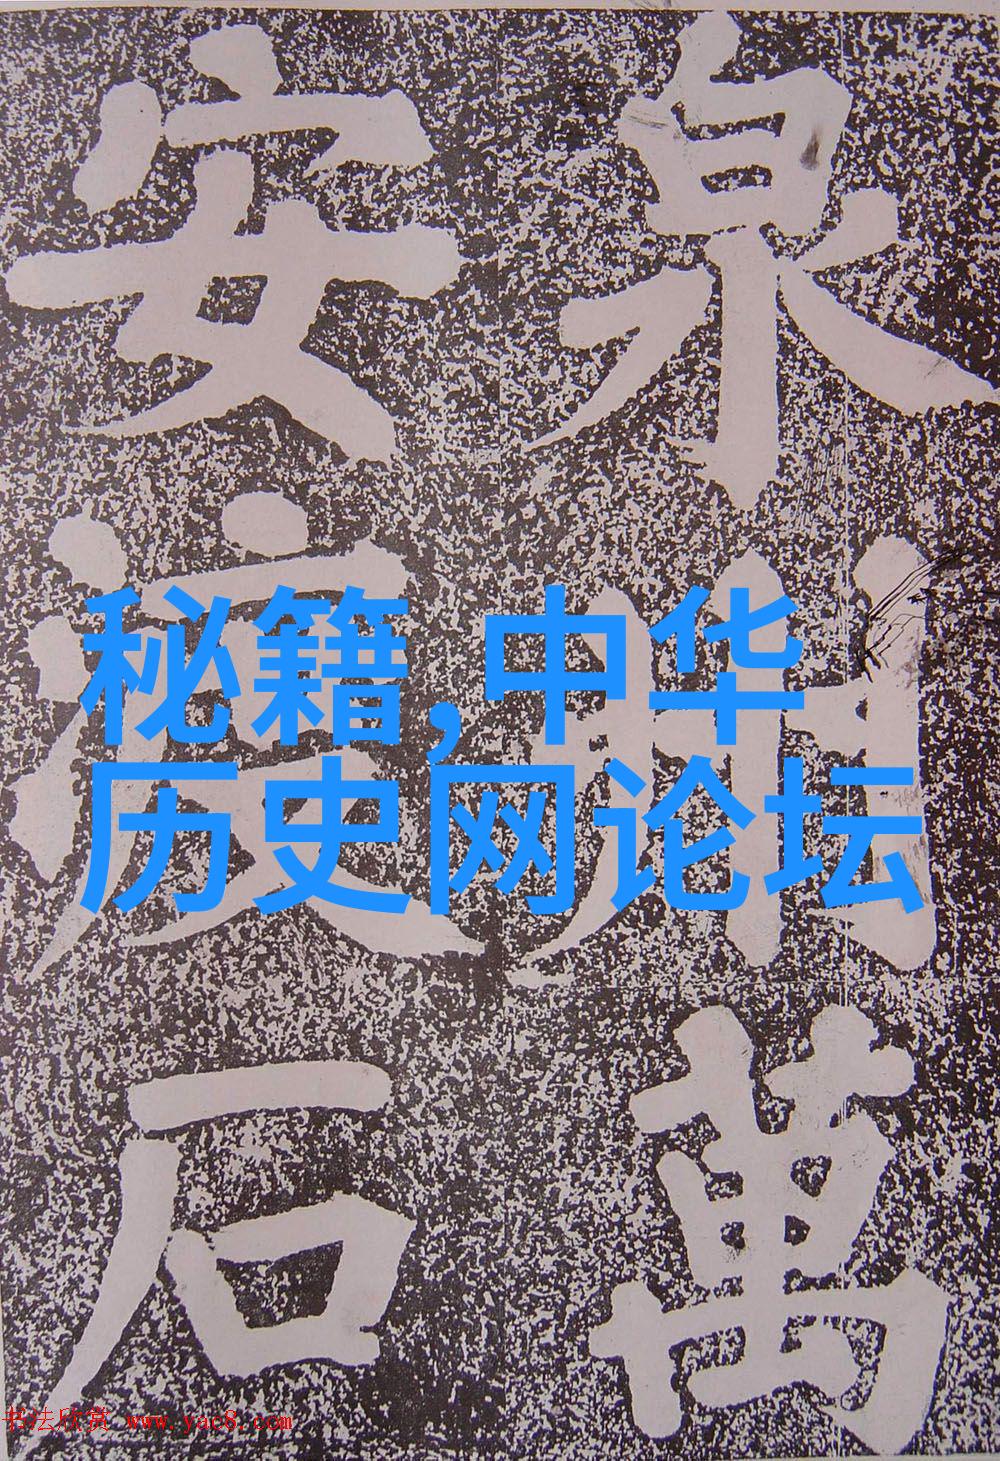 泉州萬
安渡石
秘籍,中华
历史网论坛
书法欣赏 www.yac8.com